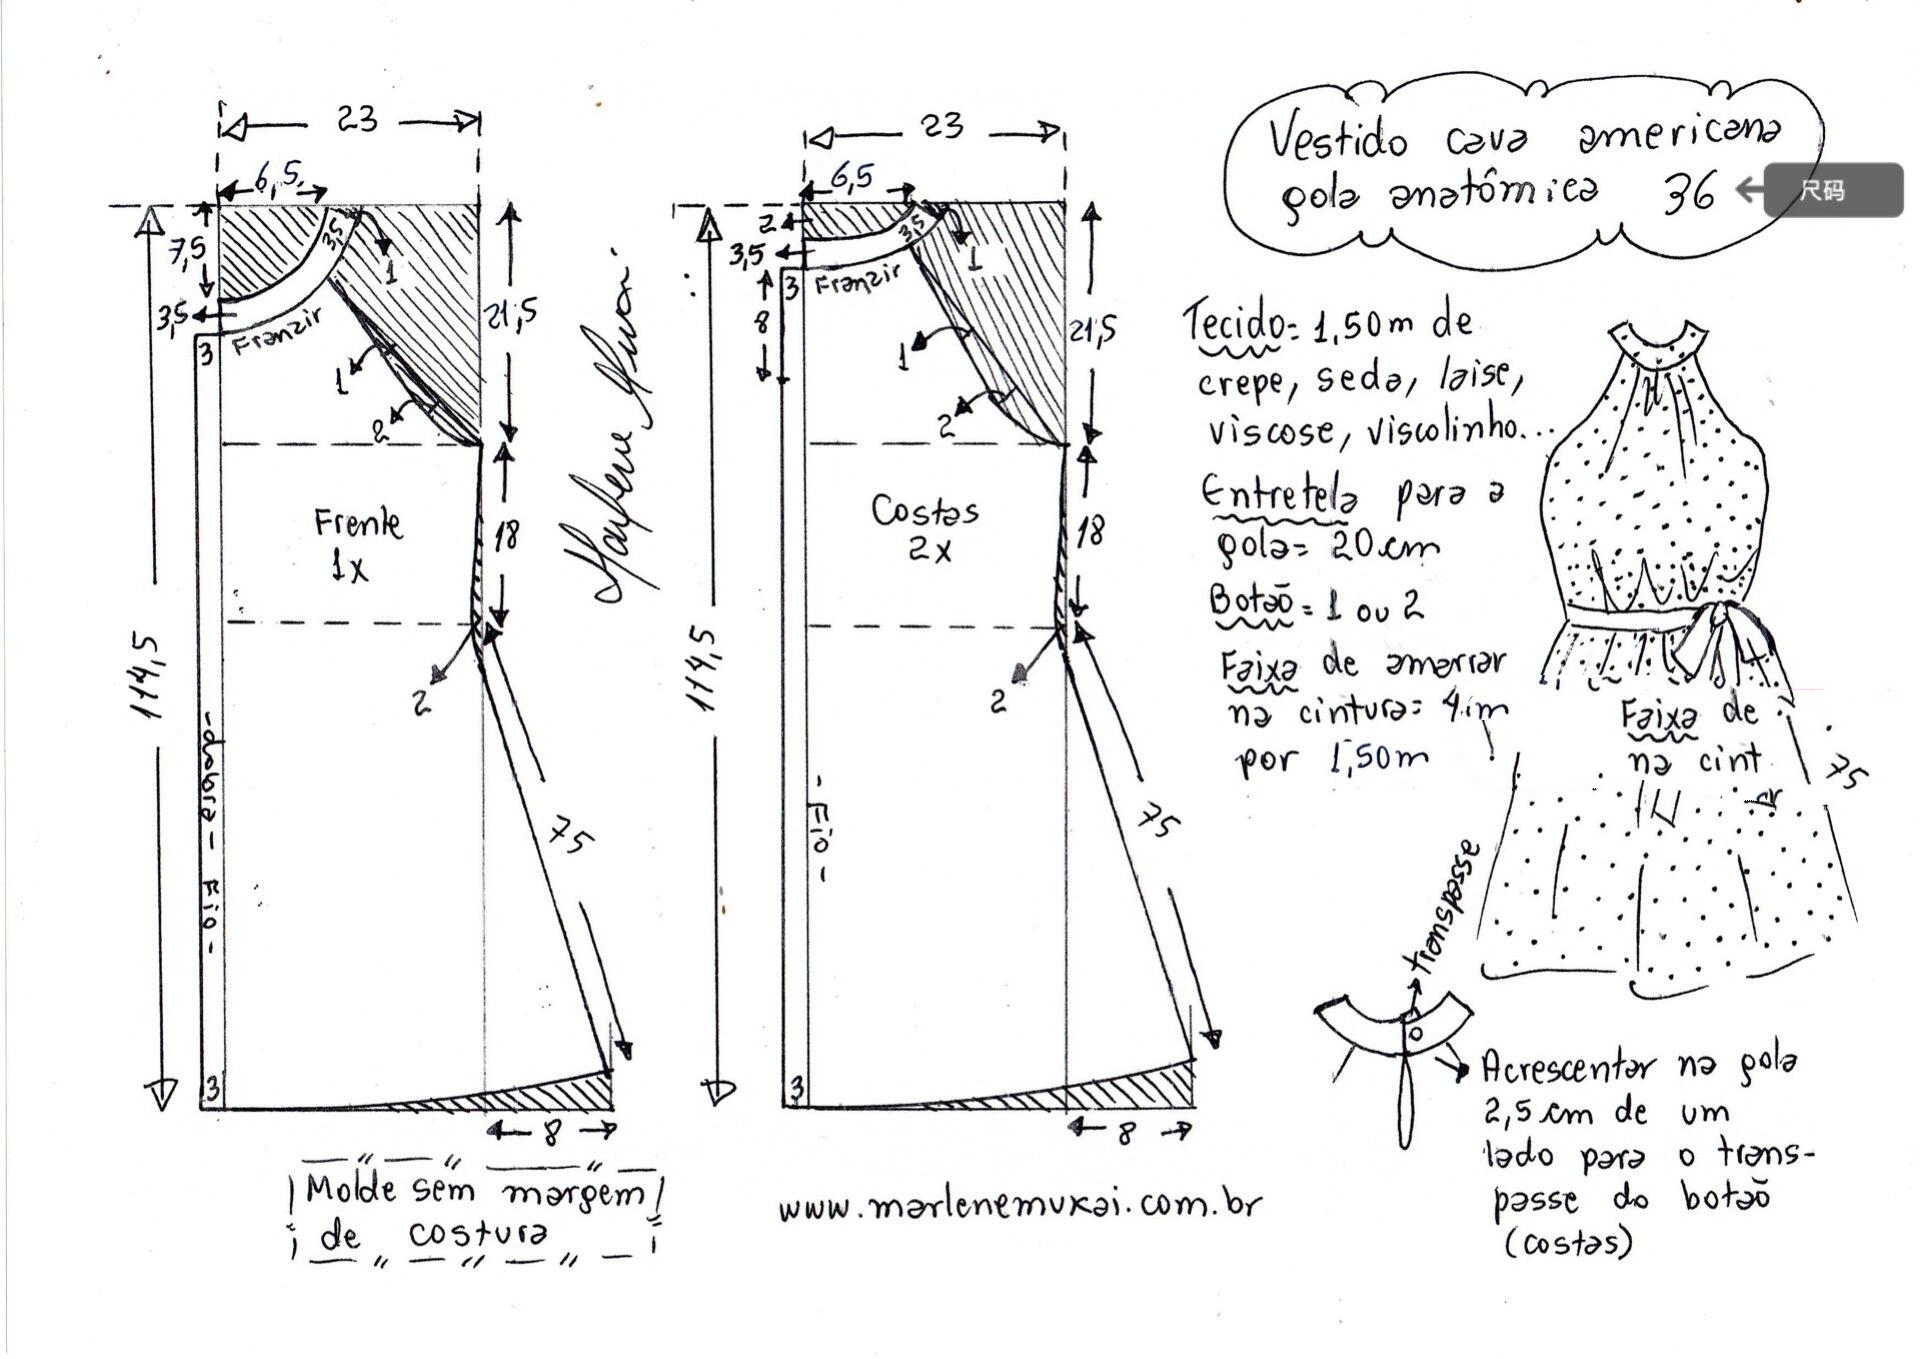 Vestido cava americana
gola anatômica 36
尺码
23
6,5
7,5
3,5
3,5
1
Franzir
3
21,5
1
2
Frente
1x
18
2
114,5
75
- dobra - Fio -
3
8
Molde sem margem
de costura
Marlene Mukai
23
6,5
2
3,5
3,5
1
Franzir
3
8
21,5
1
2
Costas
2x
18
2
114,5
75
- Fio -
3
8
www.marlenemukai.com.br
Tecido= 1,50m de
crepe, seda, laise,
viscose, viscolinho...
Entretela para a
gola= 20cm
Botão = 1 ou 2
Faixa de amarrar
na cintura=
por 1,50m
Faixa de
na cint
75
transpasse
Acrescentar na gola
2,5 cm de um
lado para o trans-
passe do botão
(costas)